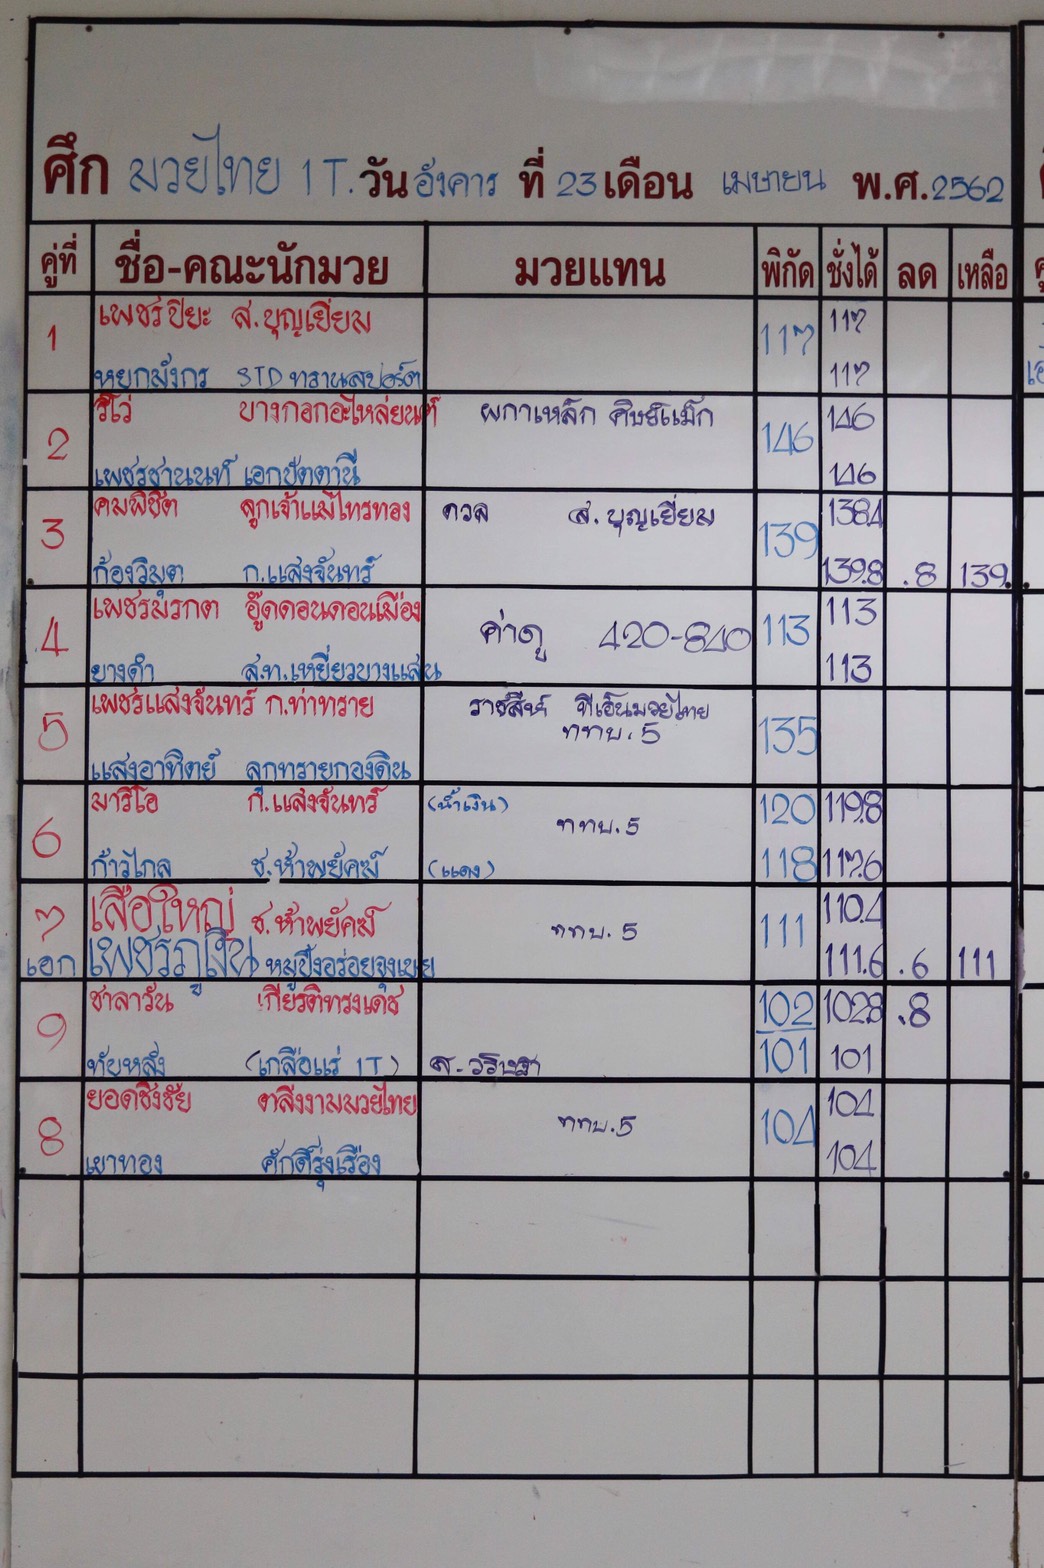 ศึก มวยไทย 1 T. วัน อังคาร ที่ 23 เดือน เมษายน พ.ศ. 2562
คู่ที่ ชื่อ-คณะนักมวย มวยแทน พิกัด ชั่งได้ ลด เหลือ
1 เพชรปิยะ ส.บุญเยี่ยม 117 117
หยกมังกร STD ทรานสปอร์ต 117
2 รีโว่ บางกอกอะไหล่ยนต์ ผกาเหล็ก ศิษย์แม๊ก 146 146
เพชรชานนท์ เอกปัตตานี 146
3 คมพิชิต ลูกเจ้าแม่ไทรทอง ดวล ส.บุญเยี่ยม 139 138.4
ก้องวิมุต ก.แสงจันทร์ 139.8 .8 139
4 เพชรมรกต อู๊ดดอนเมือง ค่าดู 420-840 113 113
ยางดำ ส.ท.เหยี่ยวบางแสน 113
5 เพชรแสงจันทร์ ก.ท่าทราย ราชสีห์ ทีเอ็นมวยไทย 135
ททบ.5
แสงอาทิตย์ ลูกทรายกองดิน
6 มาริโอ ก.แสงจันทร์ (น้ำเงิน) ททบ.5 120 119.8
ก้าวไกล ช.ห้าพยัคฆ์ (แดง) 118 117.6
7 เสือใหญ่ ช.ห้าพยัคฆ์ ททบ.5 111 110.4
เอก เพชรภูเงิน หมูปิ้งอร่อยจุงเบย 111.6 .6 111
9 ชาลาวัน เกียรติทรงเดช 102 102.8 .8
หัยหลั่ง (เกลือแร่ 1T) ส.วริษฐา 101 101
8 ยอดชิงชัย ตลิ่งงามมวยไทย ททบ.5 104 104
เขาทอง ศักดิ์รุ่งเรือง 104